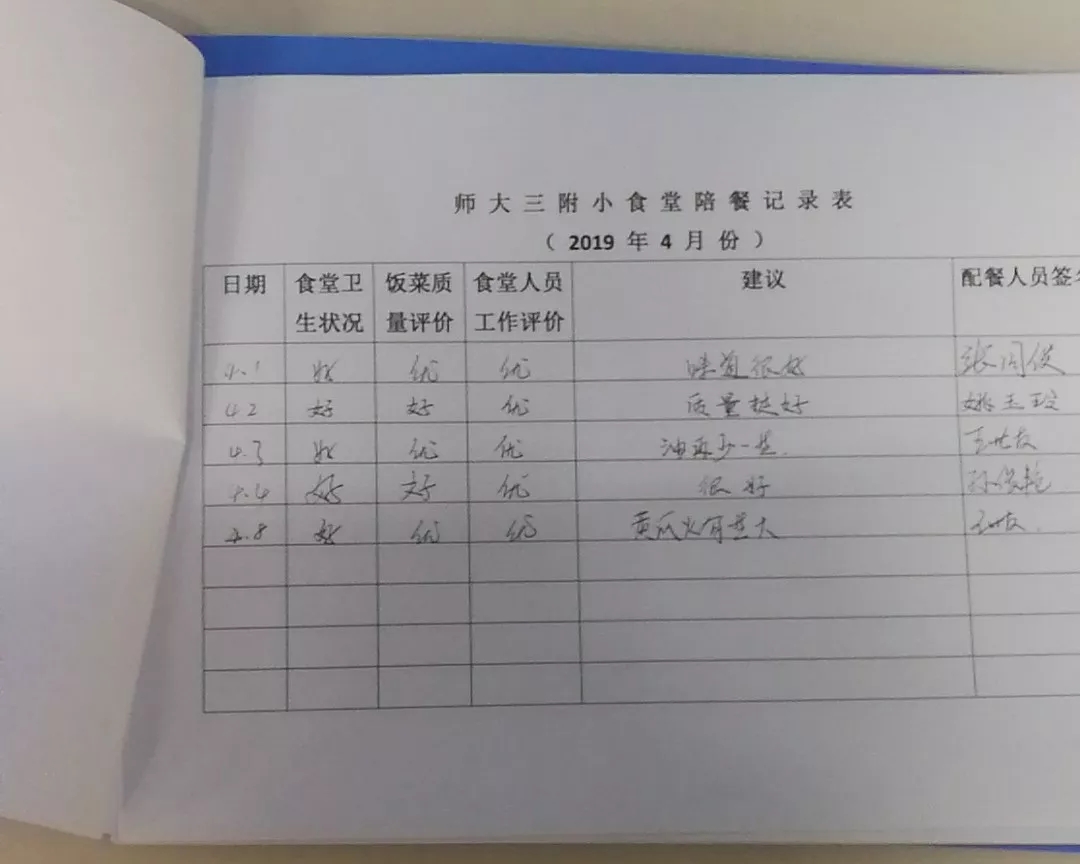 师大三附小食堂陪餐记录表
（2019 年 4 月份）
日期 食堂卫生状况 饭菜质量评价 食堂人员工作评价 建议 配餐人员签
4.1 好 优 优 味道很好
4.2 好 好 优 质量挺好
4.3 好 优 优 油再少一些
4.4 好 好 优 很好
4.8 好 优 优 黄瓜火有些大